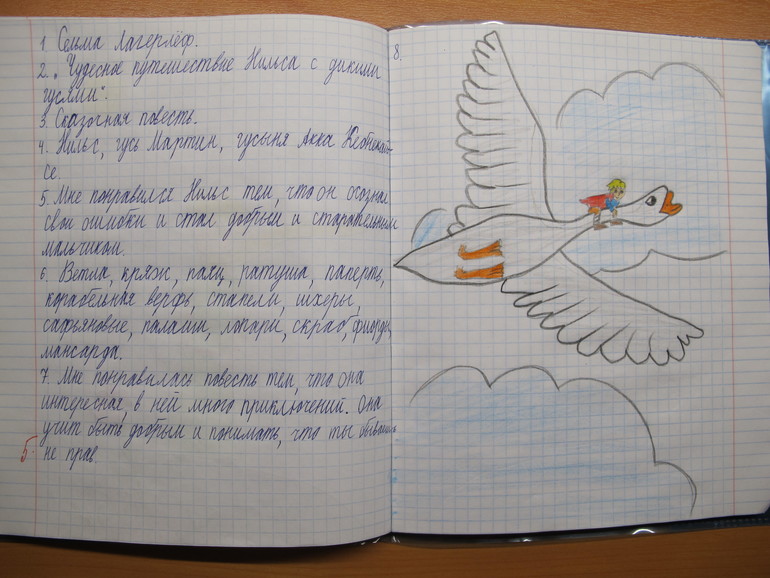 1. Сельма Лагерлёф.
2. „Чудесное путешествие Нильса с дикими
гусями".
3. Сказочная повесть.
4. Нильс, гусь Мартин, гусыня Акка Кебнекай-
се.
5. Мне понравился Нильс тем, что он осознал
свои ошибки и стал добрым и старательным
мальчиком.
6. Ветла, кряж, паяц, ратуша, паперть,
корабельная верфь, стапели, шхеры,
сафьяновые, палаши, лопари, скраб, фиорды,
мансарда.
7. Мне понравилась повесть тем, что она
интересная, в ней много приключений. Она
учит быть добрым и понимать, что ты бываешь
не прав
5.
8.